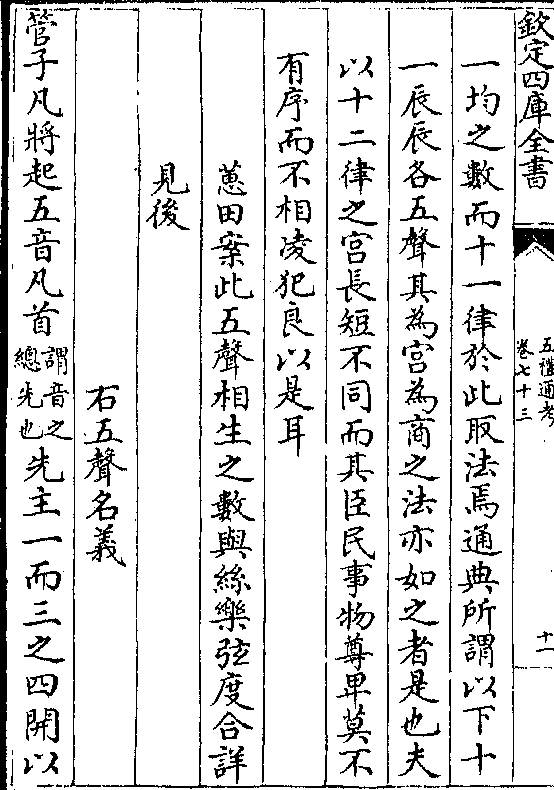 欽定四庫全書
五禮通考
卷七十三
十一
一均之數而十一律於此取法焉通典所謂以下十
一辰辰各五聲其為宫為商之法亦如之者是也夫
以十二律之宫長短不同而其臣民事物尊卑莫不
有序而不相凌犯良以是耳
蕙田案此五聲相生之數與絲樂弦度合詳
見後
右五聲名義
管子凡將起五音凡首謂音之總先也先主一而三之四開以